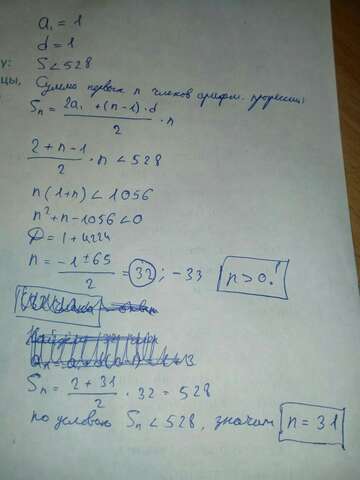 a₁ = 1
d = 1
у: S < 528
цы, Сумма первых n членов арифм. прогрессии:
Sₙ = (2a₁ + (n-1)·d)/2 · n
(2+n-1)/2 · n < 528
n(1+n) < 1056
n² + n - 1056 < 0
D = 1 + 4224
n = (-1 ± 65)/2 = 32; -33 n > 0!
Sₙ = (2+31)/2 · 32 = 528
по условию Sₙ < 528, значит n = 31